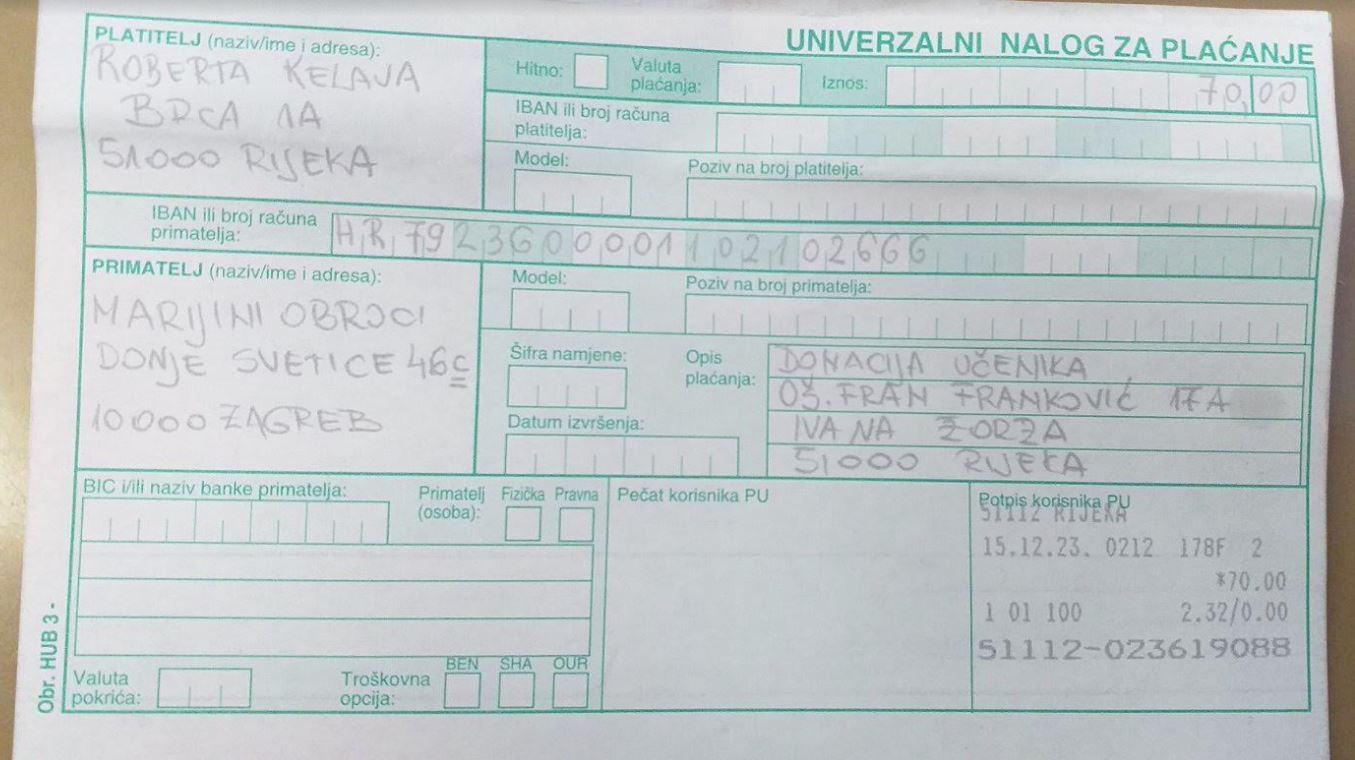 UNIVERZALNI NALOG ZA PLAĆANJE
PLATITELJ (naziv/ime i adresa):
ROBERTA KELAVA
BRCA 1A
51000 RIJEKA
Hitno:
Valuta plaćanja:
Iznos: 70,00
IBAN ili broj računa platitelja:
Model:
Poziv na broj platitelja:
IBAN ili broj računa primatelja: HR7923600001102102666
PRIMATELJ (naziv/ime i adresa):
MARIJINI OBROCI
DONJE SVETICE 46c
10000 ZAGREB
Model:
Poziv na broj primatelja:
Šifra namjene:
Datum izvršenja:
Opis plaćanja:
DONACIJA UČENIKA
OŠ. FRAN FRANKOVIĆ 17A
IVANA ŽORŽA
51000 RIJEKA
BIC i/ili naziv banke primatelja:
Primatelj (osoba): Fizička Pravna
Valuta pokrića:
Troškovna opcija: BEN SHA OUR
Pečat korisnika PU
Potpis korisnika PU
51112 RIJEKA
15.12.23. 0212 178F 2
*70.00
1 01 100 2.32/0.00
51112-023619088
Obr. HUB 3 -